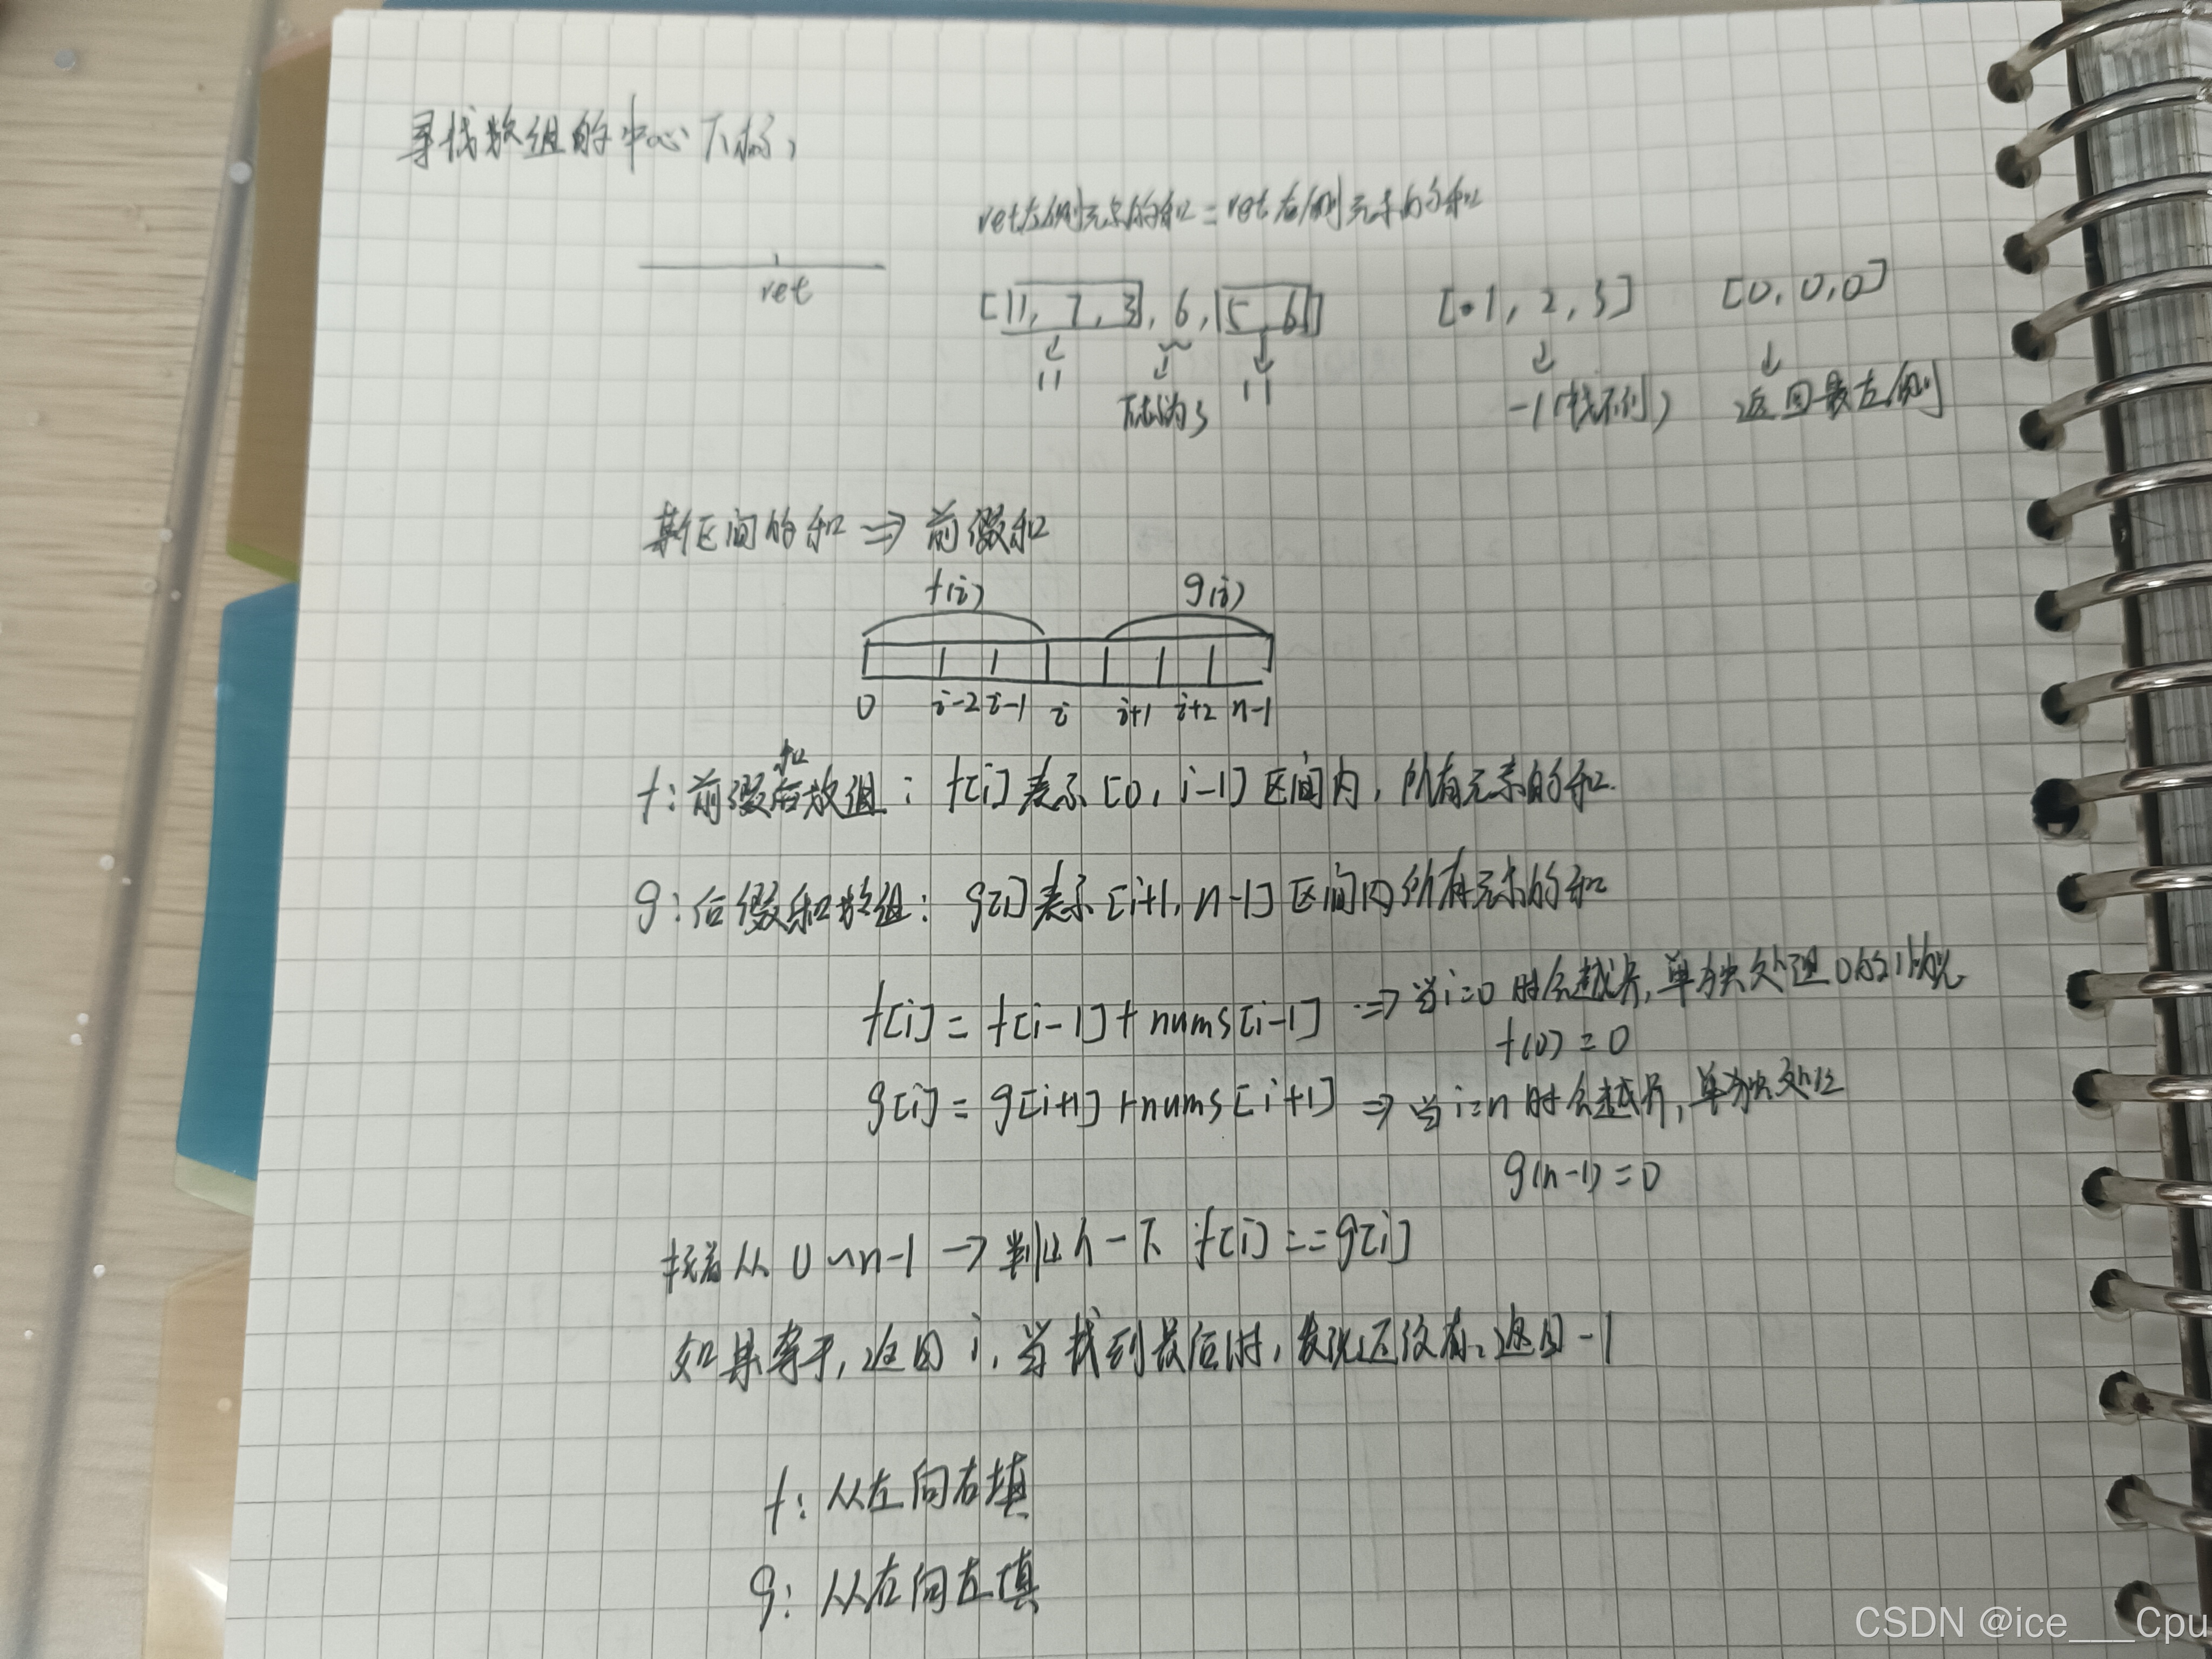 寻找数组的中心下标,
ret左侧元素的和 = ret右侧元素的和
ret
[1, 7, 3, 6, 5, 6] [1, 2, 3] [0, 0, 0]
11 下标为3 11 -1(找不到) 返回最左侧
某区间的和 => 前缀和
f(i) g(i)
0 i-2 i-1 i i+1 i+2 n-1
f: 前缀和数组: f[i]表示[0, i-1]区间内, 所有元素的和.
g: 后缀和数组: g[i]表示[i+1, n-1]区间内所有元素的和
f[i] = f[i-1] + nums[i-1] => 当i=0时会越界, 单独处理0的情况
f(0) = 0
g[i] = g[i+1] + nums[i+1] => 当i=n时会越界, 单独处理
g(n-1) = 0
接着从 0~n-1 → 判断一下 f[i] == g[i]
如果等于, 返回 i, 当找到最后时, 发现还没有, 返回 -1
f: 从左向右填
g: 从右向左填
CSDN @ice___Cpu